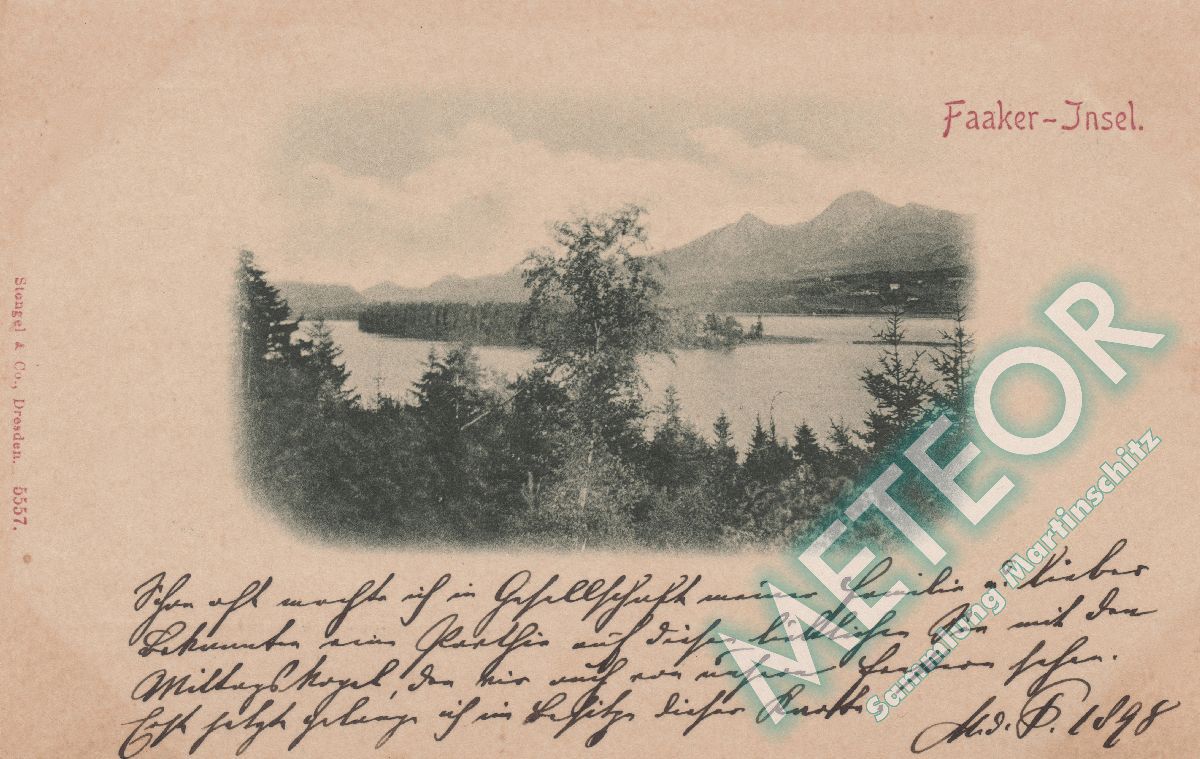 Faaker-Insel.
Stengel & Co., Dresden. 5557.
METEOR
Sammlung Martinschitz
Schon oft machte ich in Gesellschaft meiner Familie u. lieber
Bekannten eine Parthie auf diesen lieblichen See mit dem
Mittagskogel, den wir auch von unserem sehen.
Erst jetzt gelange ich in Besitze dieser Karte
1898